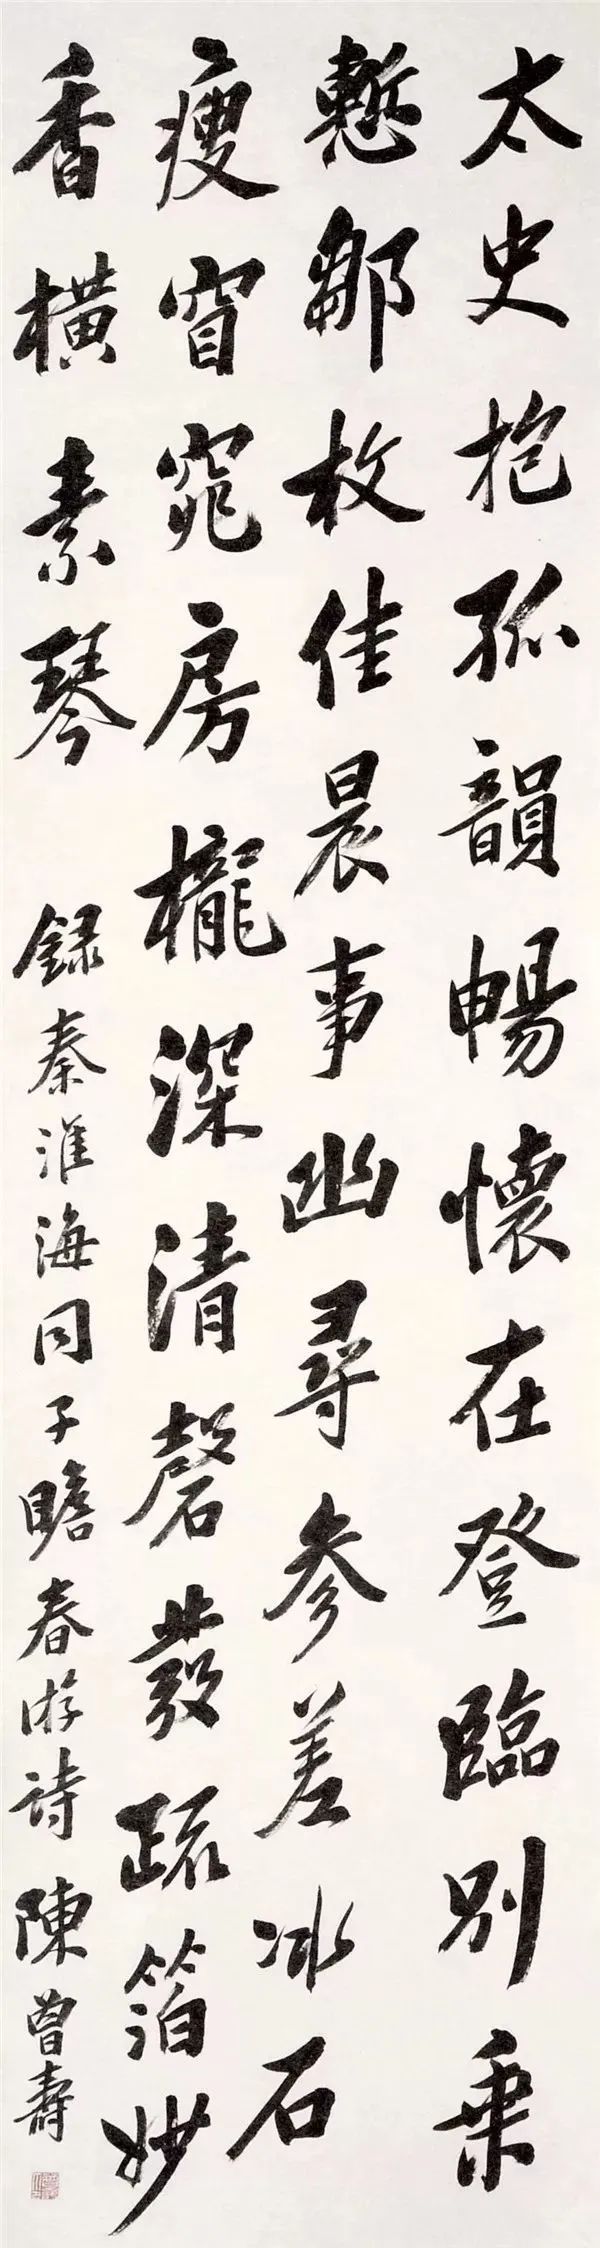 太史抱孤韻暢懷在登臨別乗
慙鄒枚佳晨事幽尋參差冰石
瘦窅窕房櫳深清磬發疏箔妙
香橫素琴 録秦淮海同子瞻春游詩 陳曾壽